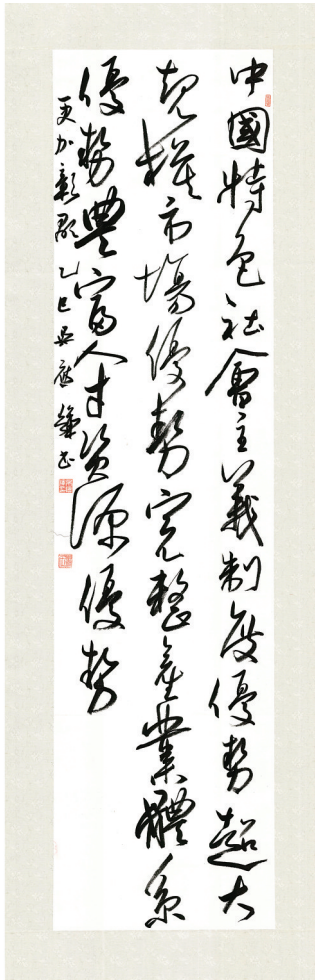 中國特色社會主義制度優勢超大
規模市場優勢完整產業體系
優勢豐富人才資源優勢
更加彰顯乙巳吳應鏞書